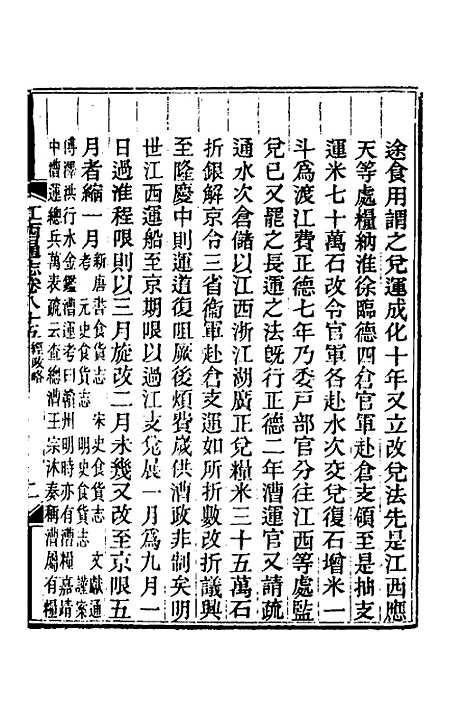 途食用謂之兌運成化十年又立改兌法先是江西應
天等處糧納淮徐臨德四倉官軍赴倉支領至是抽支
運米七十萬石改令官軍各赴水次交兌復石增米一
斗爲渡江費正德七年乃委戸部官分往江西等處監
兌已又罷之長運之法旣行正德二年漕運官又請疏
通水次倉儲以江西浙江湖廣正兌糧米三十五萬石
折銀解京令三省衞軍赴倉支運如所折數改折議興
至隆慶中則運道復阻厥後煩費歲供漕政非制矣明
世江西運船至京期限以過江支兌展一月爲九月一
日過淮程限則以三月旋改二月未幾又改至京限五
月者縮一月新唐書食貨志 宋史食貨志 文獻通
考 元史食貨志 明史食貨志 謹案
傅澤洪行水金鑑漕運考曰贛州明時亦有漕糧嘉靖
中漕運總兵萬表疏云查總漕王宗沐奏稱漕屬有糧
江西通志卷八十五 經政略